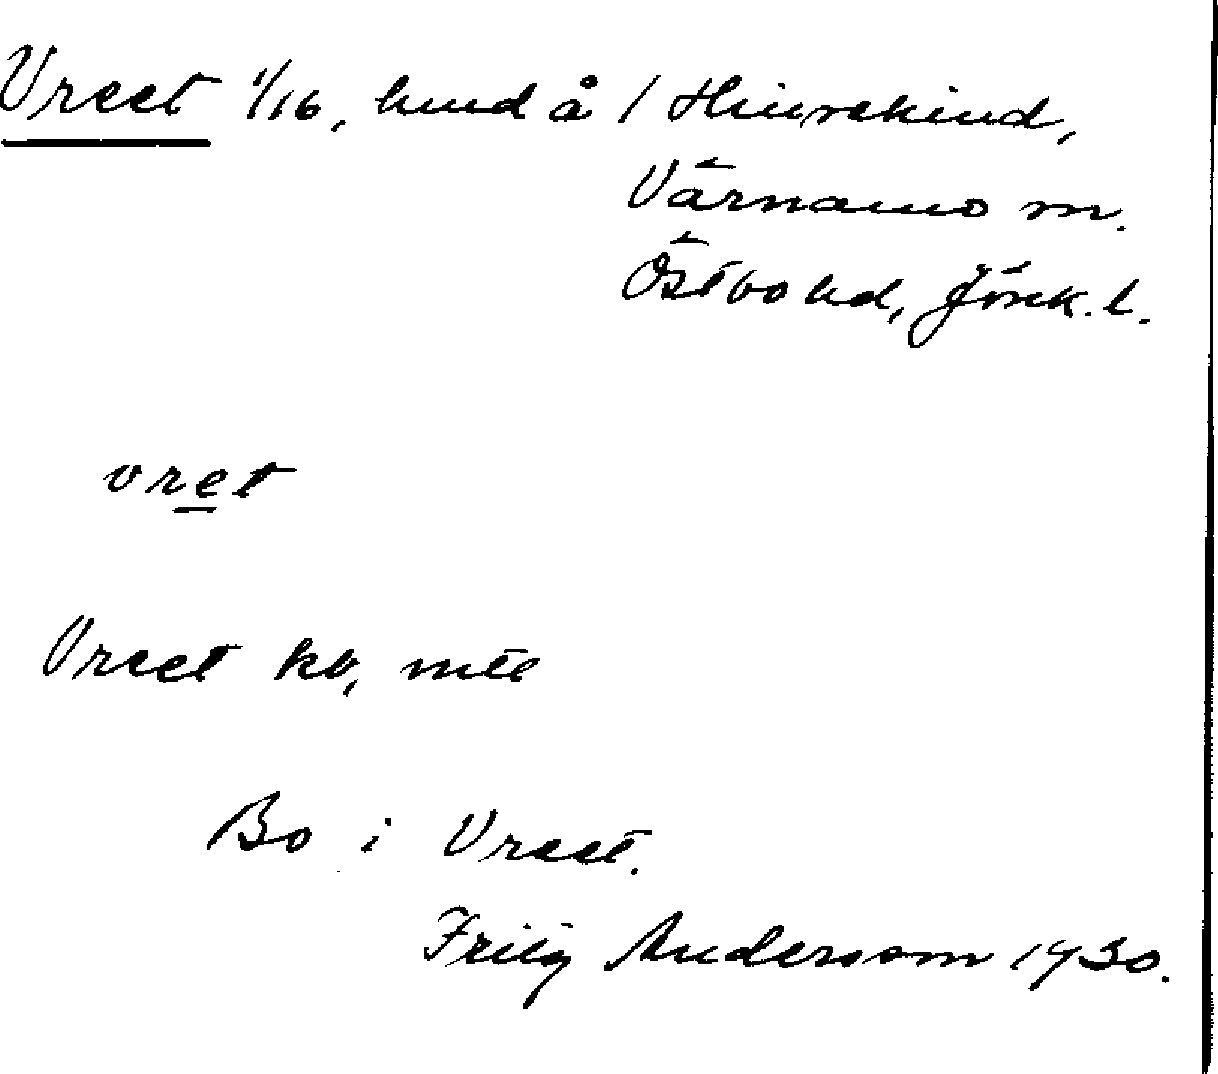 Vreet 1/16, hmd å 1 Hinsekind,
Värnamo sn.
Östbo hd, Jönk. l.
vret
Vreet kb, mtl
Bo i Vreet.
Fritz Andersson 1930.